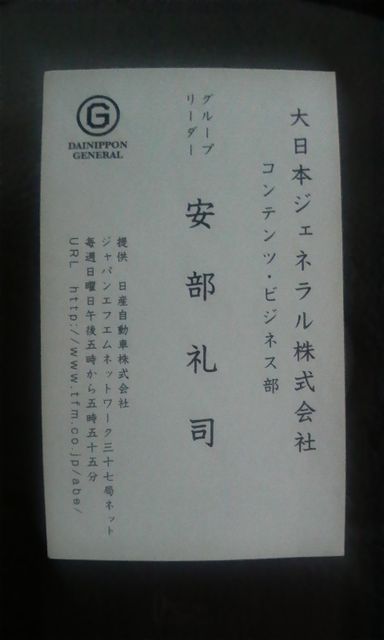 大日本ジェネラル株式会社
コンテンツ・ビジネス部
グループ
リーダー
安部礼司
G
DAINIPPON
GENERAL
提供 日産自動車株式会社
ジャパンエフエムネットワーク三十七局ネット
毎週日曜日午後五時から五時五十五分
URL http://www.tfm.co.jp/abe/